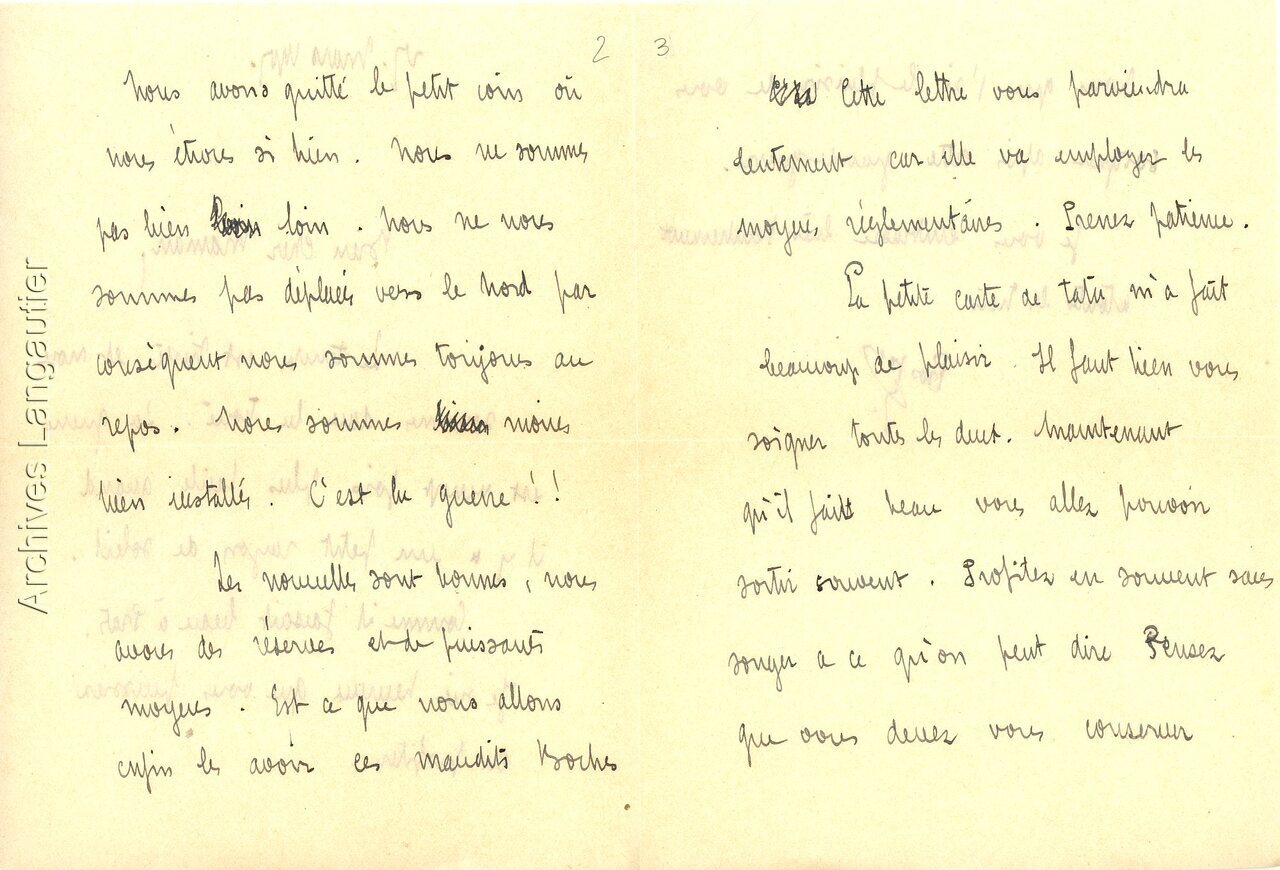 2
Nous avons quitté le petit coin où
nous étions si bien. Nous ne sommes
pas bien loin. Nous ne nous
sommes pas déplacés vers le Nord par
conséquent nous sommes toujours au
repos. Nous sommes moins
bien installés. C'est la guerre!!
Les nouvelles sont bonnes, nous
avons des réserves et de puissants
moyens. Est ce que nous allons
enfin les avoir ces maudits Boches
3
Cette lettre vous parviendra
lentement car elle va employer les
moyens réglementaires. Prenez patience.
La petite carte de tatu m'a fait
beaucoup de plaisir. Il faut bien vous
soigner toutes les deux. Maintenant
qu'il fait beau vous allez pouvoir
sortir souvent. Profitez en souvent sans
songer a ce qu'on peut dire Pensez
que vous devez vous conserver
Archives Langautier